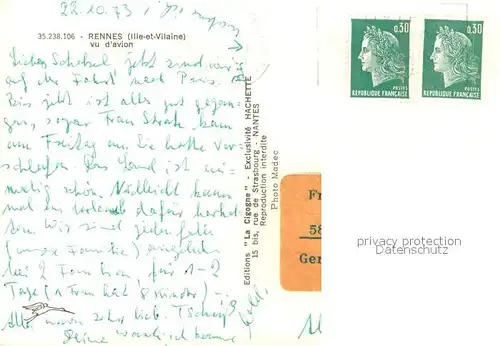 22.10.73
35.238.106 - RENNES (Ille-et-Vilaine)
vu d'avion
Lieber Schatzel jetzt sind wir
auf die Fahrt nach Paris.
Bis jetzt ist alles gut gegan-
gen, sogar Frau Strate kam
am Freitag an. Sie hatte ver-
schlafen. Das Land ist ein-
malig schön. Vielleicht kann
man im Urlaub dafür
Wir sind jeder falls
(unsre Familie) eingeladen
bei 2 Familien für 1-2
Tage (1 Frau hat 8 Kinder)
Alle waren sehr lieb. Tschüß
Deine
Editions "La Cigogne" - Exclusivité HACHETTE
15 bis, rue de Strasbourg - NANTES
Reproduction interdite
Photo Madec
0,30
POSTES
REPUBLIQUE FRANÇAISE
0,30
POSTES
REPUBLIQUE FRANÇAISE
Fr
58
Ger
privacy protection
Datenschutz